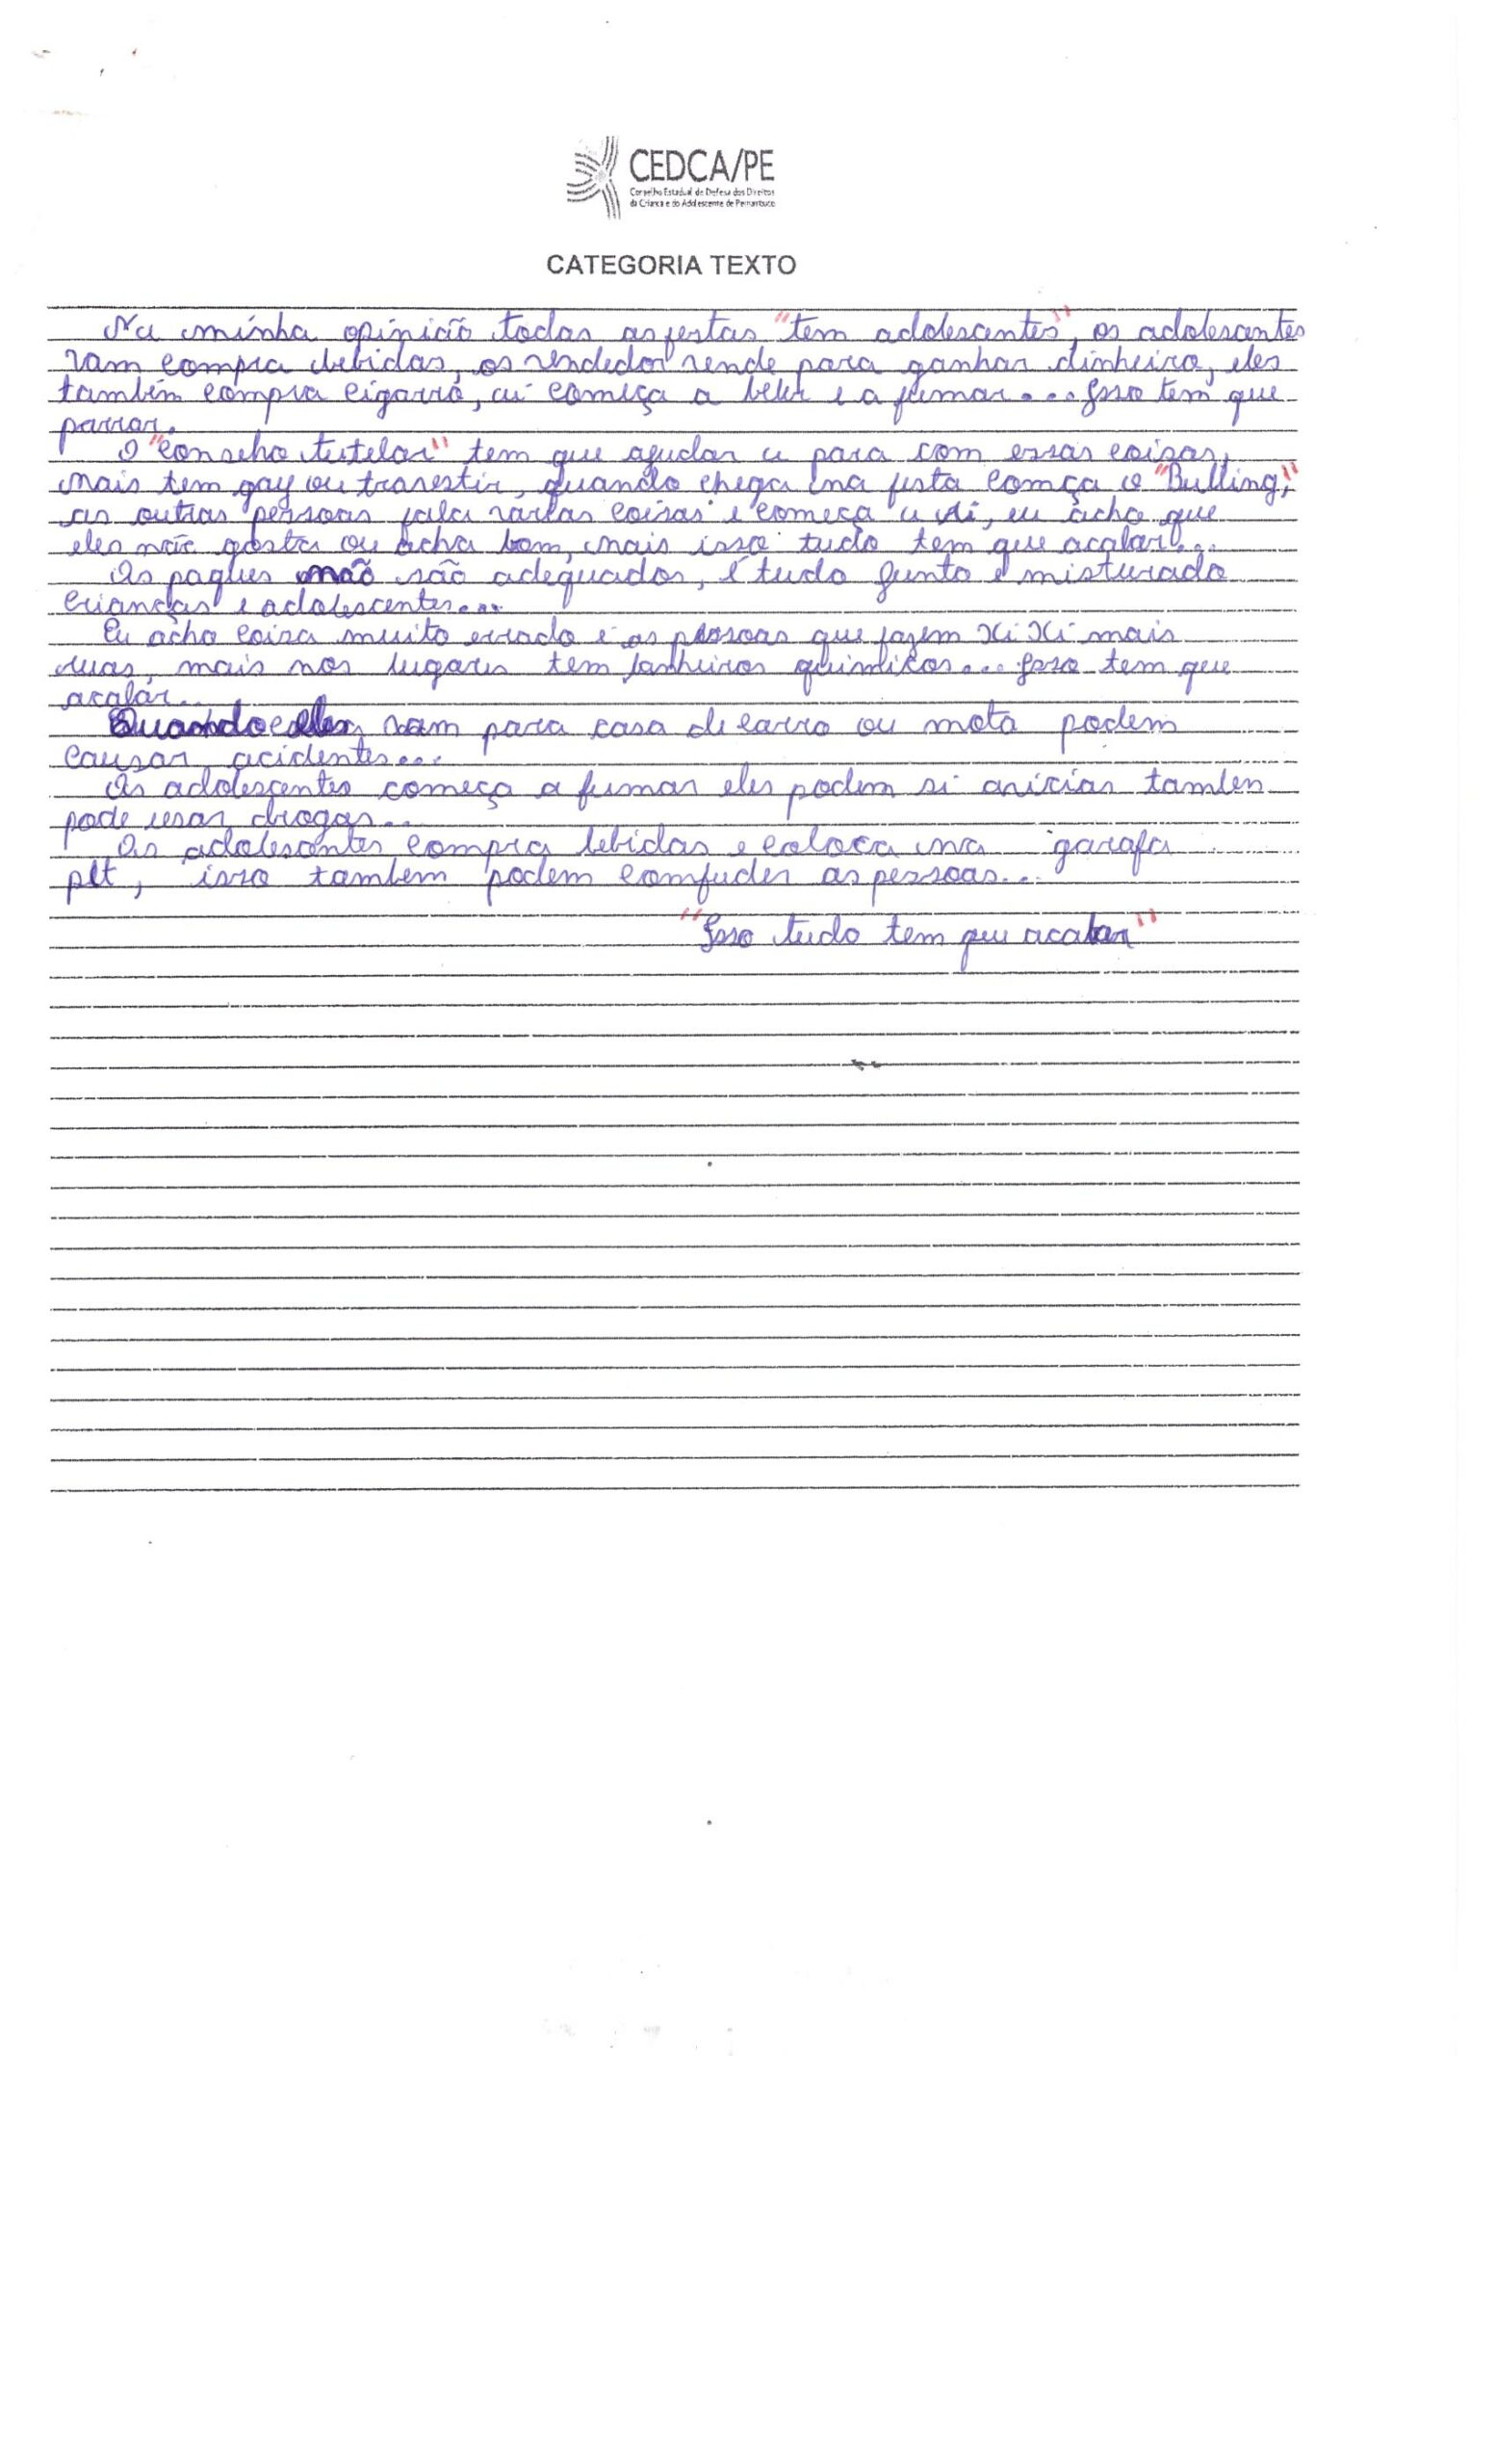 CEDCA/PE
Conselho Estadual de Defesa dos Direitos
da Criança e do Adolescente de Pernambuco
CATEGORIA TEXTO
Na minha opinião todas as festas "tem adolescentes", os adolesantes
vam compra bebidas, os vendedor vende para ganhar dinheiro, eles
também compra cigarro, ai começa a beber e a fumar... Isso tem que
parrar.
O "conseho tutelar" tem que ajudar a para com essas coisas,
mais tem gay ou travestir, quando chega na festa comça o "Bulling",
as outras pessoas fala varias coisas e começa a ri, eu acho que
eles não gosta ou acha bom, mais isso tudo tem que acabar...
Os paques não são adequados, é tudo junto e misturado
crianças e adolescentes...
Eu acho coisa muito errado e as pessoas que fazem Xi Xi mais
ruas, mais nos lugares tem banheiros quimikos... Isso tem que
acabar...
Quando eles vam para casa de carro ou mota podem
causar acidentes...
Os adolescentes começa a fumar eles podem si viciar tamben
pode usar drogas...
Os adolesantes compra bebidas e coloca na garafa
pet, isso tambem podem comfuder as pessoas...
"Isso tudo tem que acabar"